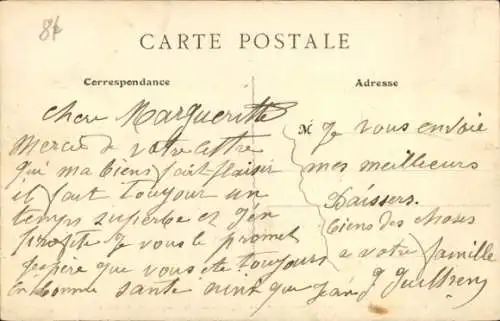 84
CARTE POSTALE
Correspondance
Adresse
Chere Margueritte
Mercie de votre lettre
qui ma biens fait plaisir
il fait toujour un
temps superbe et j'en
profite Je vous le promet
J'espère que vous ete toujours
en bonne sante ainsi que Jean
M Je vous envoie
mes meilleurs
Baissers.
biens des choses
a votre famille